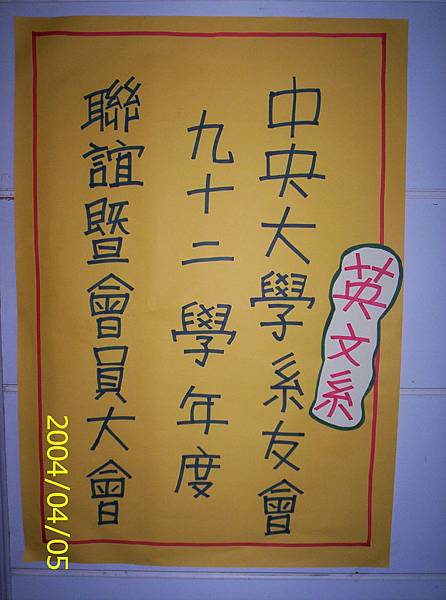 英文系
中央大學系友會
九十二學年度
聯誼暨會員大會
2004/04/05